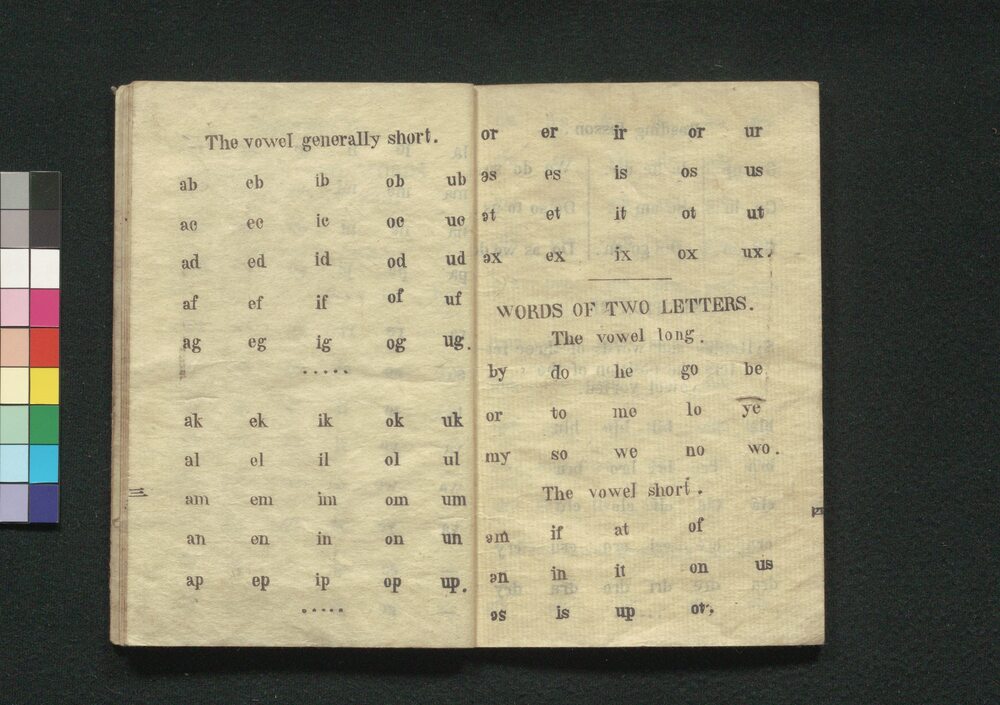 The vowel generally short.
ab eb ib ob ub
ac ec ic oc uc
ad ed id od ud
af ef if of uf
ag eg ig og ug.
.....
ak ek ik ok uk
al el il ol ul
am em im om um
三
an en in on un
ap ep ip op up.
.....
or er ir or ur
as es is os us
at et it ot ut
ax ex ix ox ux.
WORDS OF TWO LETTERS.
The vowel long.
by do he go be
or to me lo ye
my so we no wo.
The vowel short.
am if at of
an in it on us
as is up or.